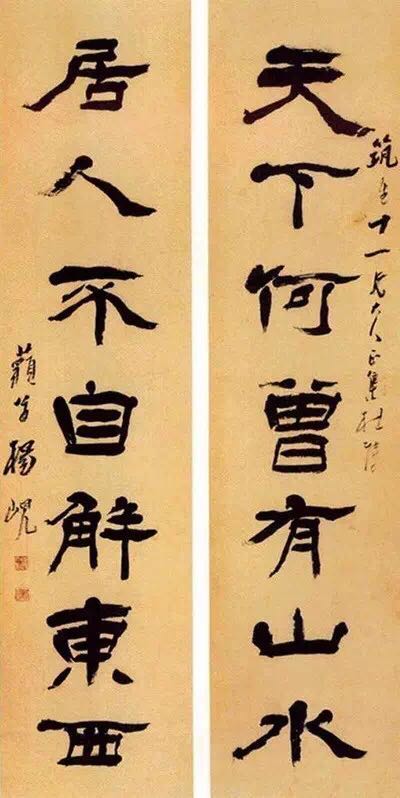 天下何曾有山水
筑十一兄大人正集杜陸
居人不自解東西
藐翁楊峴